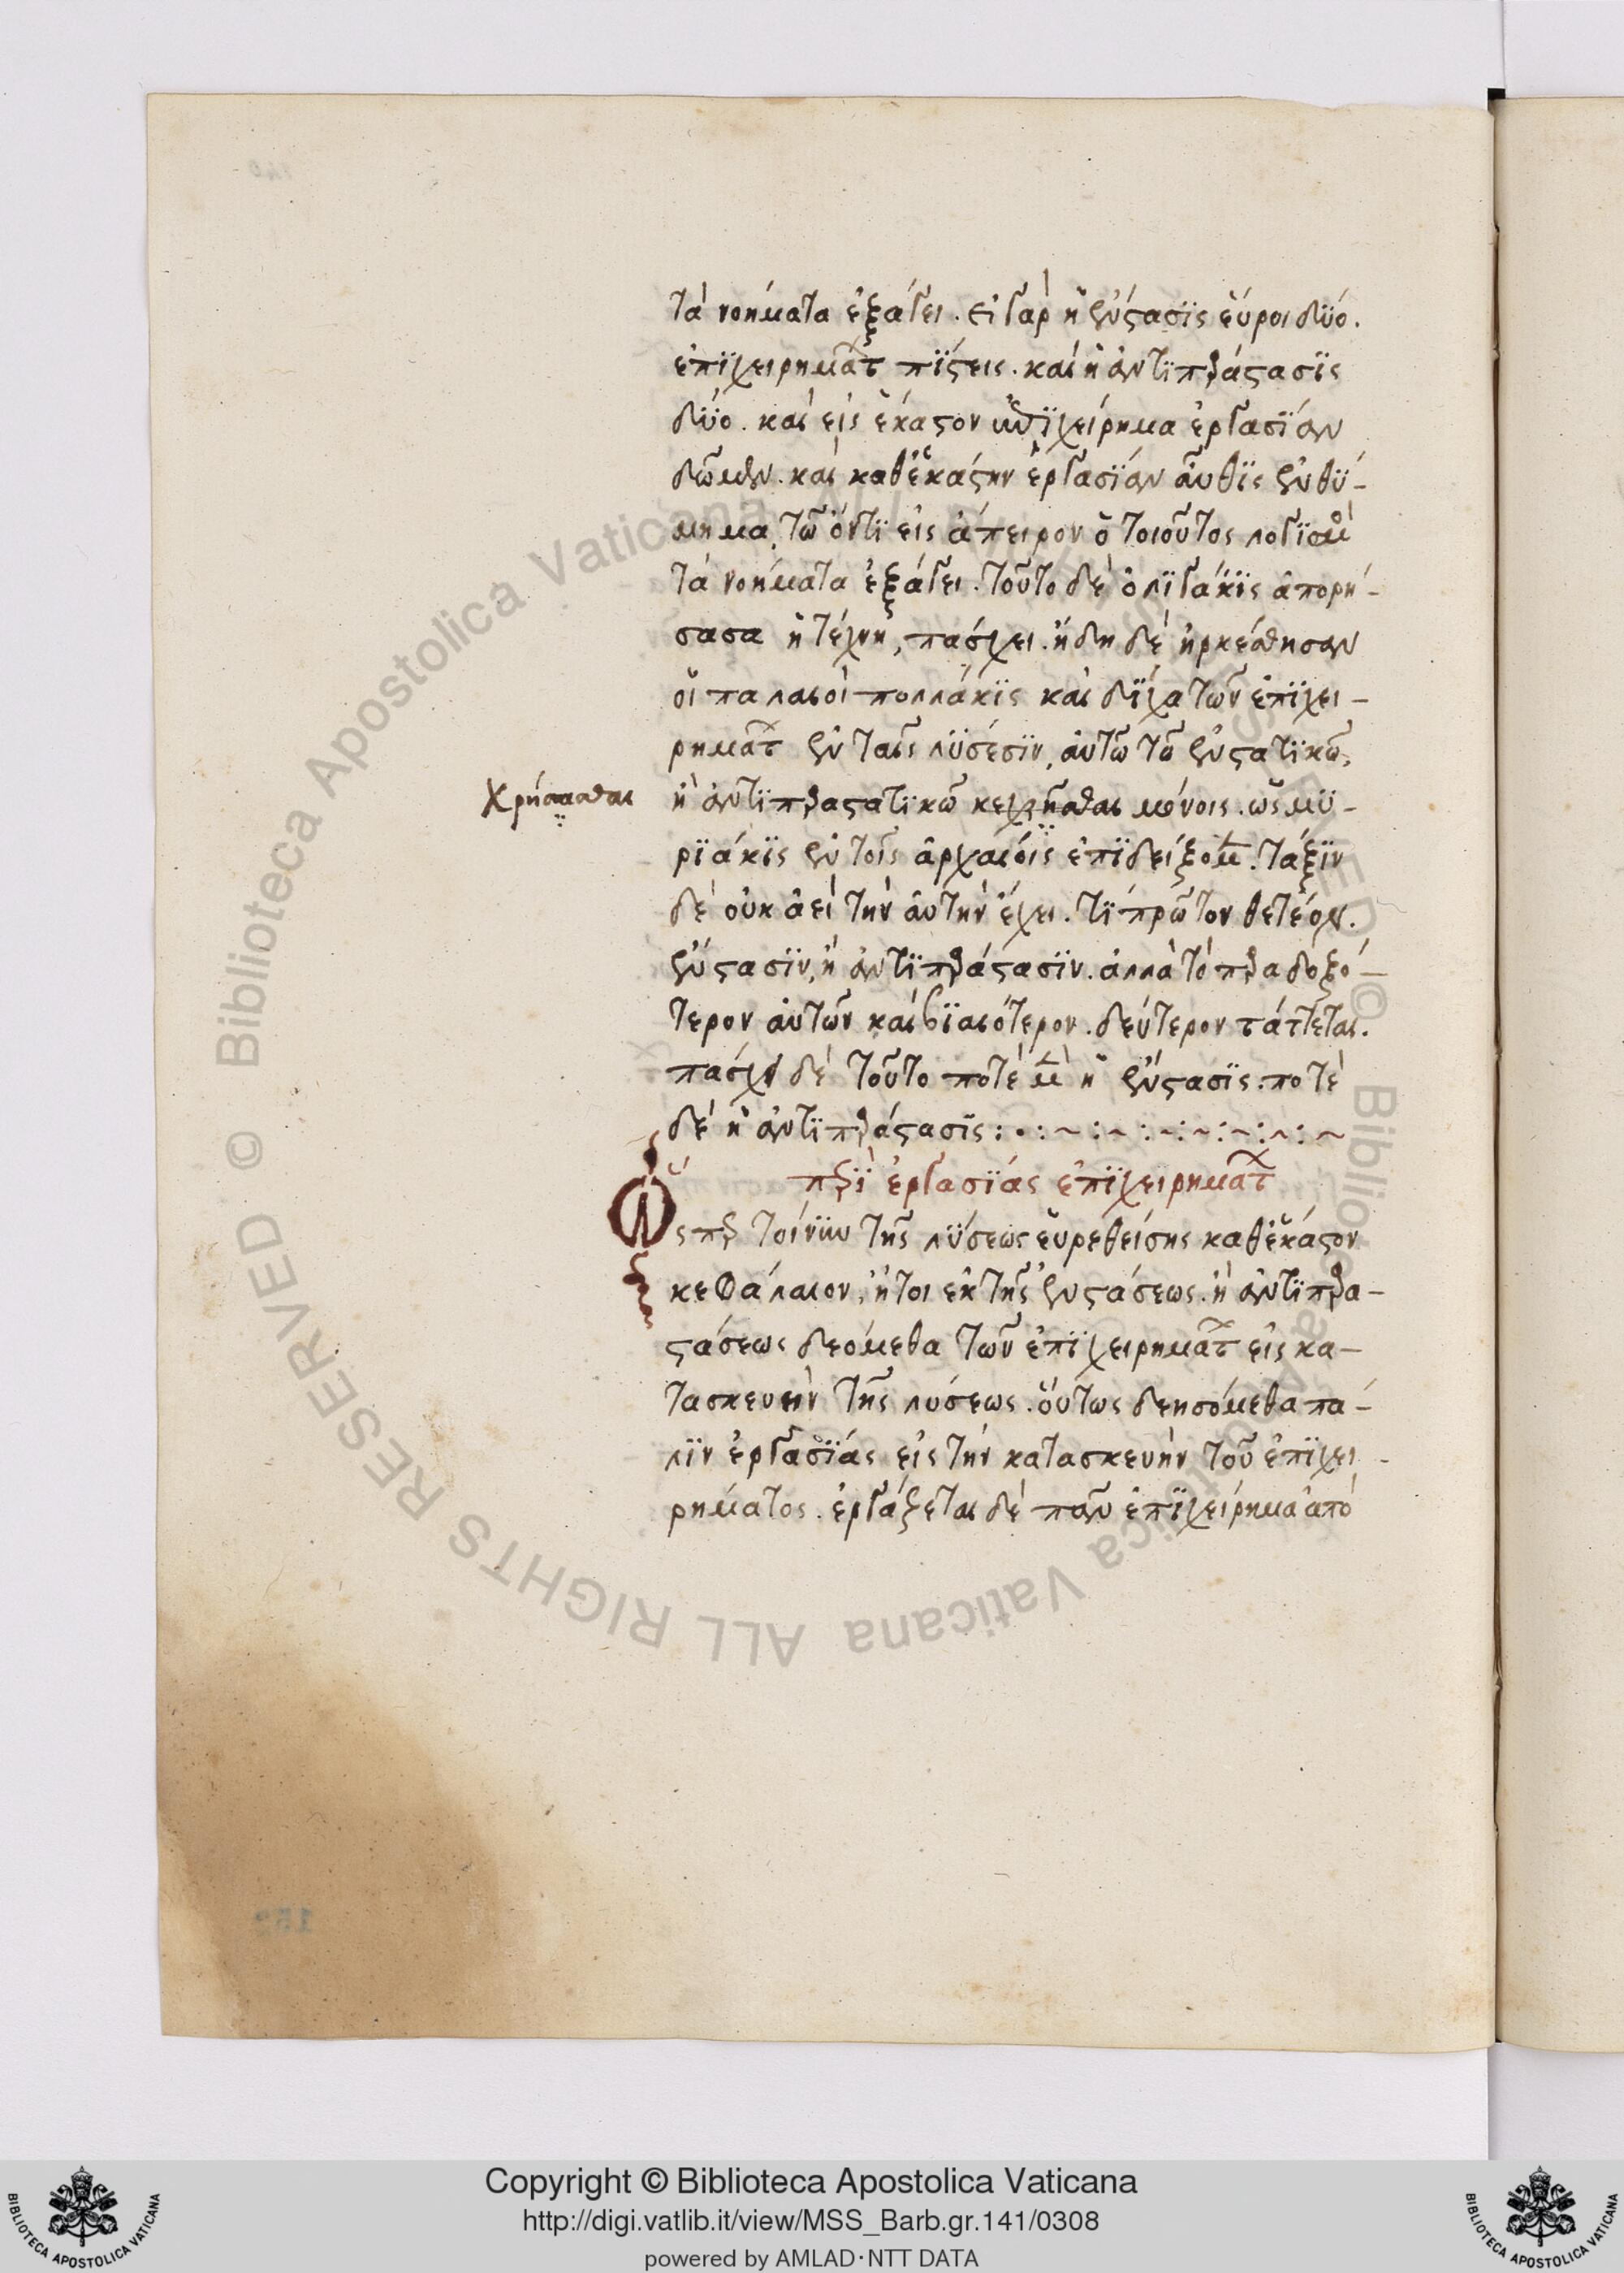 τὰ νοήματα ἐξάγει. εἰ γὰρ ἡ ἔνστασϊς εὕροι δϋό.
ἐπϊχειρημάτ πϊστεις. καὶ ἡ ἀντϊπαράστασϊς
δϋό. καὶ εἰς ἕκαστον ἐπϊχείρημα ἐργασϊάν
δῶμεν. καὶ καθἑκάστην ἐργασϊάν αὖθϊς ἐνθϋ-
μημα, τῶ ὄντϊ εἰς ἄπειρον ὁ τοιοῦτος λογϊσμὸ
τὰ νοήματα ἐξάγει. τοῦτο δὲ ὀλϊγάκϊς ἀπορή-
σασα ἡ τέχνη, πάσχει. ἤδη δὲ ἠρκέσθησαν
οἱ παλαιοὶ πολλάκϊς καὶ δϊχα τῶν ἐπϊχει-
ρημάτ ἐν ταῖς λϋσέσϊν, ἀυτῶ τῶ ἐνστατϊκῶ,
χρήσασθαι
ἢ ἀντϊπαραστατϊκῶ κεχρῆσθαι μόνοις. ὡς μϋ-
ρϊάκϊς ἐν τοῖς ἀρχαιόις ἐπϊδείξομ. τάξϊν
δὲ οὐκ ἀεὶ τὴν ἀυτὴν ἔχει. τϊ πρῶτον θετέον.
ἔνστασϊν, ἢ ἀντϊπαράστασϊν. ἀλλὰ τὸ παραδοξό-
τερον ἀυτῶν καὶ βϊαιότερον. δεύτερον τάττεται.
πάσχει δὲ τοῦτο ποτὲ μ ἡ ἔνστασϊς. ποτὲ
δὲ ἡ ἀντϊπαράστασϊς:•:~:~:~:~:~:~
περϊ ἐργασϊάς ἐπϊχειρημάτ
Ὥσπερ τοίνϋν τῆς λϋσεως εὑρεθείσης καθἑκάστον
κεφάλαιον, ἤτοι ἐκ τῆς ἐνστάσεως. ἢ ἀντϊπαρα-
στάσεως δεόμεθα τῶν ἐπϊχειρημάτ εἰς κα-
τασκευὴν τῆς λύσεως. οὕτως δεησόμεθα πά-
λϊν ἐργασϊάς εἰς τὴν κατασκευὴν τοῦ ἐπϊχει-
ρήματος. ἐργάζεται δὲ πᾶν ἐπϊχείρημα ἀπὸ
Copyright © Biblioteca Apostolica Vaticana
http://digi.vatlib.it/view/MSS_Barb.gr.141/0308
powered by AMLAD·NTT DATA
BIBLIOTECA APOSTOLICA VATICANA
BIBLIOTECA APOSTOLICA VATICANA
© Biblioteca Apostolica Vaticana ALL RIGHTS RESERVED